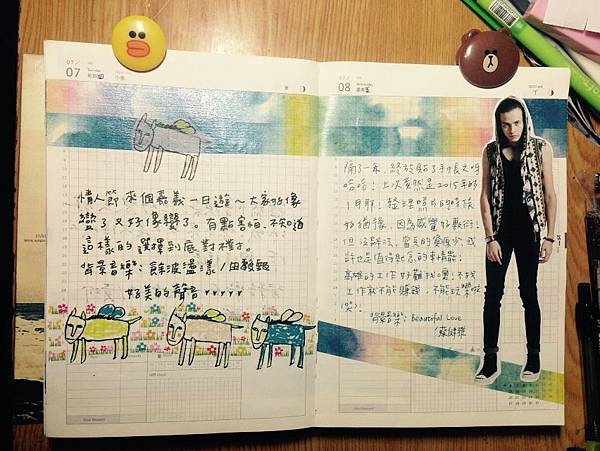 07/
07
小暑
情人節來個嘉義一日遊～大家好像
變了又好像變了。有點害怕,不知道
這樣的選擇到底對檬?
背景音樂:餘波盪漾/田馥甄
好美的聲音♥♥♥♥♥
07/
08
隔了一年,終於貼了手帳文呀
哈哈!上次竟然是2015年的
1月耶!整理照片的時候
好猶豫,因為感覺好歡樂!
但沒辦法,當頁的
許也是值得紀念的事情。
高雄的工作好難找噢!不找
工作就不能賺錢,不能玩樂啦
(哭)!
背景音樂:Beautiful Love
/蔡健雅